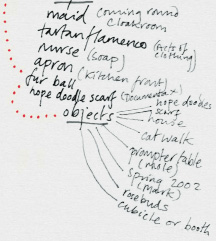 maid coming round
cloakroom
tartan flamenco (acts of
clothing)
nurse (soap)
apron
fur ball (kitchen front)
hope doodle scarf (Documenta X)
objects
hope doodles
scarf
house
catwalk
prompter table
(mole)
spring 2002
(mark)
rosebuds
cubicle or booth